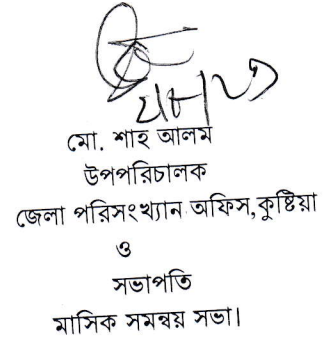 মো. শাহ আলম
উপপরিচালক
জেলা পরিসংখ্যান অফিস,কুষ্টিয়া
ও
সভাপতি
মাসিক সমন্বয় সভা।